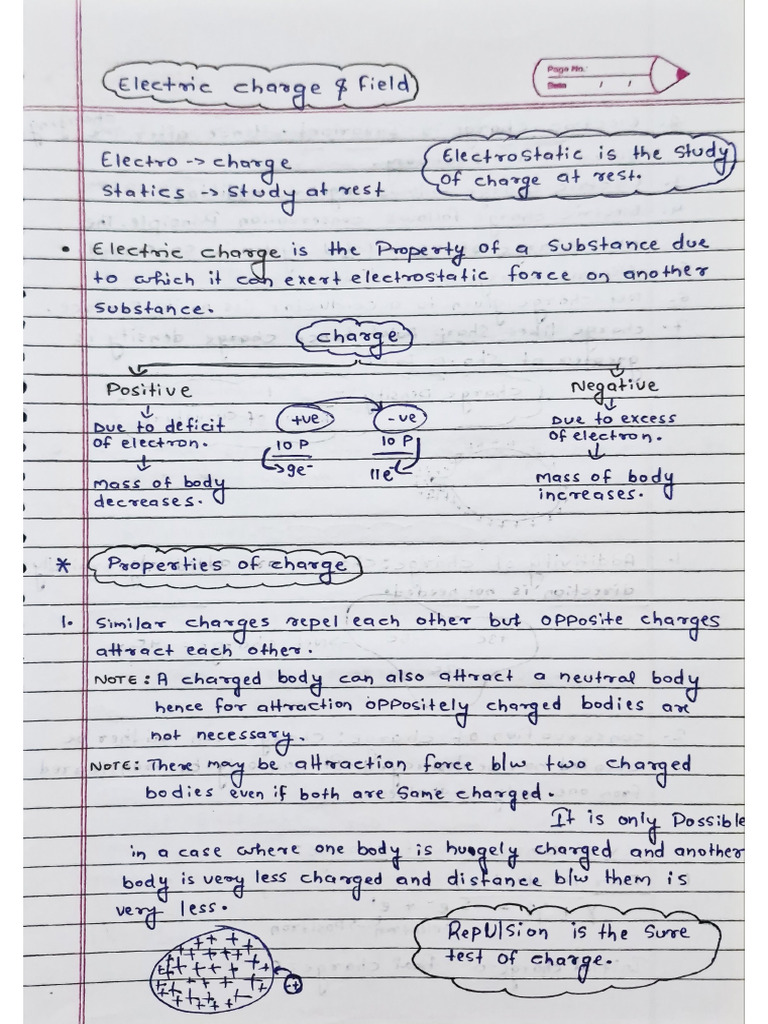 Electric charge & Field
Page No.
Date / /
Electro -> charge
Statics -> Study at rest
Electrostatic is the Study
of charge at rest.
• Electric charge is the Property of a Substance due
to which it can exert electrostatic force on another
Substance.
Charge
Positive
Negative
Due to deficit
of electron.
Mass of body
decreases.
+ve
-ve
10 P
9e-
10 P
11e-
Due to excess
of electron.
Mass of body
increases.
* Properties of charge
1. Similar charges repel each other but opposite charges
attract each other.
NOTE: A charged body can also attract a neutral body
hence for attraction oppositely charged bodies are
not necessary.
NOTE: There may be attraction force b/w two charged
bodies even if both are same charged.
It is only Possible
in a case where one body is hugely charged and another
body is very less charged and distance b/w them is
very less.
Repulsion is the Sure
test of charge.